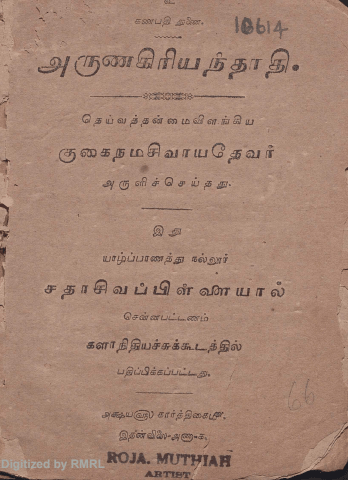 உ
கணபதி துணை.
10614
அருணகிரியந்தாதி.
தெய்வத்தன்மைவிளங்கிய
குகைநமசிவாயதேவர்
அருளிச்செய்தது.
இது
யாழ்ப்பாணத்து நல்லூர்
சதாசிவப்பிள்ளையால்
சென்னபட்டணம்
கலாநிதியச்சுக்கூடத்தில்
பதிப்பிக்கப்பட்டது.
கார்த்திகை
இதன்விலை-அணா-க.
66
Digitized by RMRL
ROJA. MUTHIAH
ARTIST